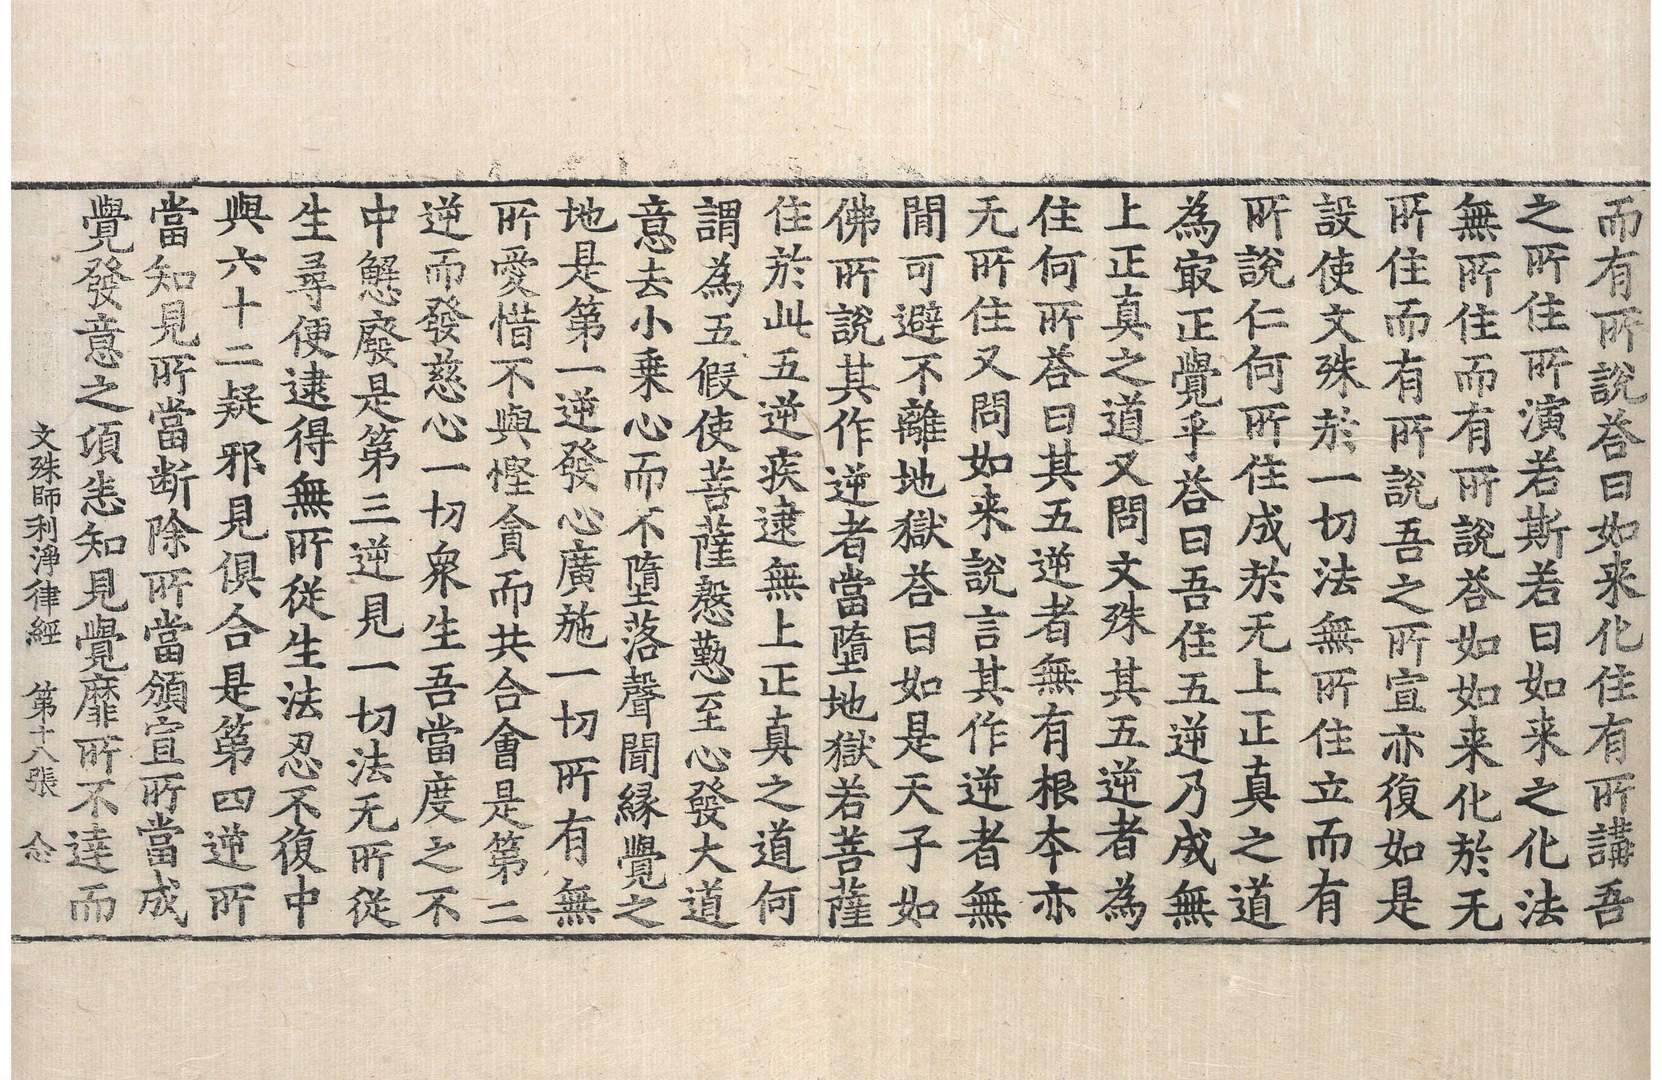 而有所說荅曰如来化住有所講吾
之所住所演若斯若曰如来之化法
無所住而有所說荅如如来化於无
所住而有所說吾之所宣亦復如是
設使文殊於一切法無所住立而有
所說仁何所住成於无上正真之道
為㝡正覺乎荅曰吾住五逆乃成無
上正真之道又問文殊其五逆者為
住何所荅曰其五逆者無有根夲亦
无所住又問如来說言其作逆者無
閒可避不離地獄荅曰如是天子如
佛所說其作逆者當墮地獄若菩薩
住於此五逆疾逮無上正真之道何
謂為五假使菩薩慇懃至心發大道
意去小乗心而不墮落聲聞縁覺之
地是第一逆發心廣施一切所有無
所愛惜不與慳貪而共合會是第二
逆而發慈心一切衆生吾當度之不
中懈廢是第三逆見一切法无所従
生尋便逮得無所従生法忍不復中
與六十二疑邪見俱合是第四逆所
當知見所當断除所當頒宣所當成
覺發意之頃恚知見覺靡所不達而
文殊師利淨律經 第十八張 念